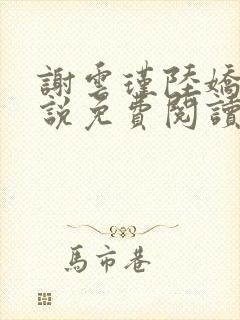 謝雲瑾陸嬌
説免費閱讀
馬市巷